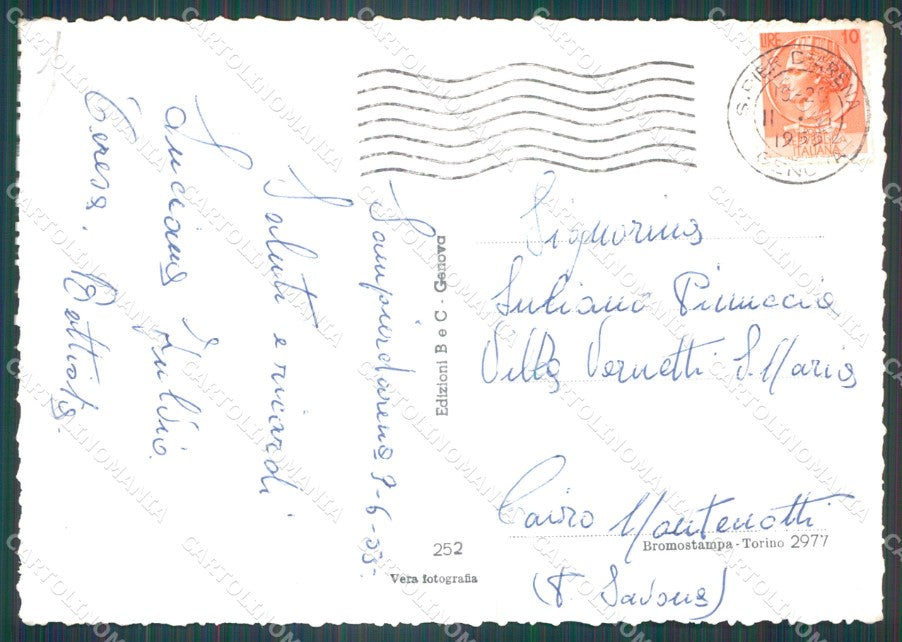 Sampierdarena 7-6-55.
Saluti e ricordi
Luciana Fulvio
Teresa. Battista.
Edizioni B e C - Genova
252
Vera fotografia
LIRE 10
ITALIANA
S. PIER D'ARENA
GENOVA
1955
Signorina
Giuliano Pinuccia
Villa Vernetti S. Maria
Cairo Montenotti
Bromostampa - Torino 2977
(P. Savona)
CARTOLINOMANIA